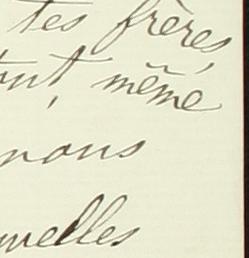 tes frères,
tout, même
nous
nouvelles